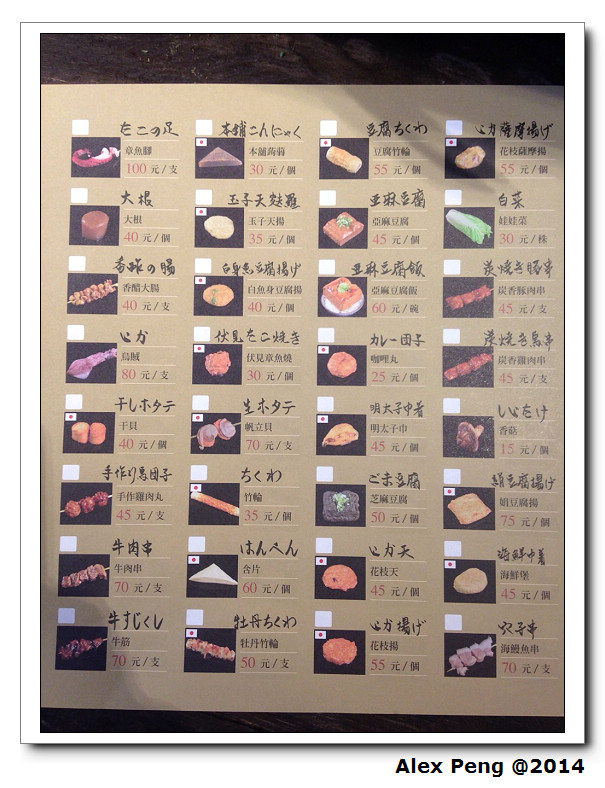 たこの足
章魚腳
100 元/支
本舖こんにゃく
本舖蒟蒻
30 元/個
豆腐ちくわ
豆腐竹輪
55 元/個
いか薩摩揚げ
花枝薩摩揚
55 元/個
大根
大根
40 元/個
玉子天麩羅
玉子天揚
35 元/個
亜麻豆腐
亞麻豆腐
45 元/個
白菜
娃娃菜
30 元/株
香酢の腸
香醋大腸
40 元/支
白身魚豆腐揚げ
白魚身豆腐揚
40 元/個
亜麻豆腐飯
亞麻豆腐飯
60 元/碗
炭焼き豚串
炭香豚肉串
45 元/支
いか
烏賊
80 元/支
伏見たこ焼き
伏見章魚燒
30 元/個
カレー団子
咖哩丸
25 元/個
炭焼き鳥串
炭香雞肉串
45 元/支
干しホタテ
干貝
40 元/個
生ホタテ
帆立貝
70 元/支
明太子巾着
明太子巾
45 元/個
しいたけ
香菇
15 元/個
手作り鳥団子
手作雞肉丸
45 元/支
ちくわ
竹輪
35 元/個
ごま豆腐
芝麻豆腐
50 元/個
絹豆腐揚げ
娟豆腐揚
75 元/個
牛肉串
牛肉串
70 元/支
はんぺん
含片
60 元/個
いか天
花枝天
45 元/個
海鮮巾着
海鮮堡
45 元/個
牛すじくし
牛筋
70 元/支
牡丹ちくわ
牡丹竹輪
50 元/支
いか揚げ
花枝揚
55 元/個
穴子串
海鰻魚串
70 元/支
Alex Peng @2014